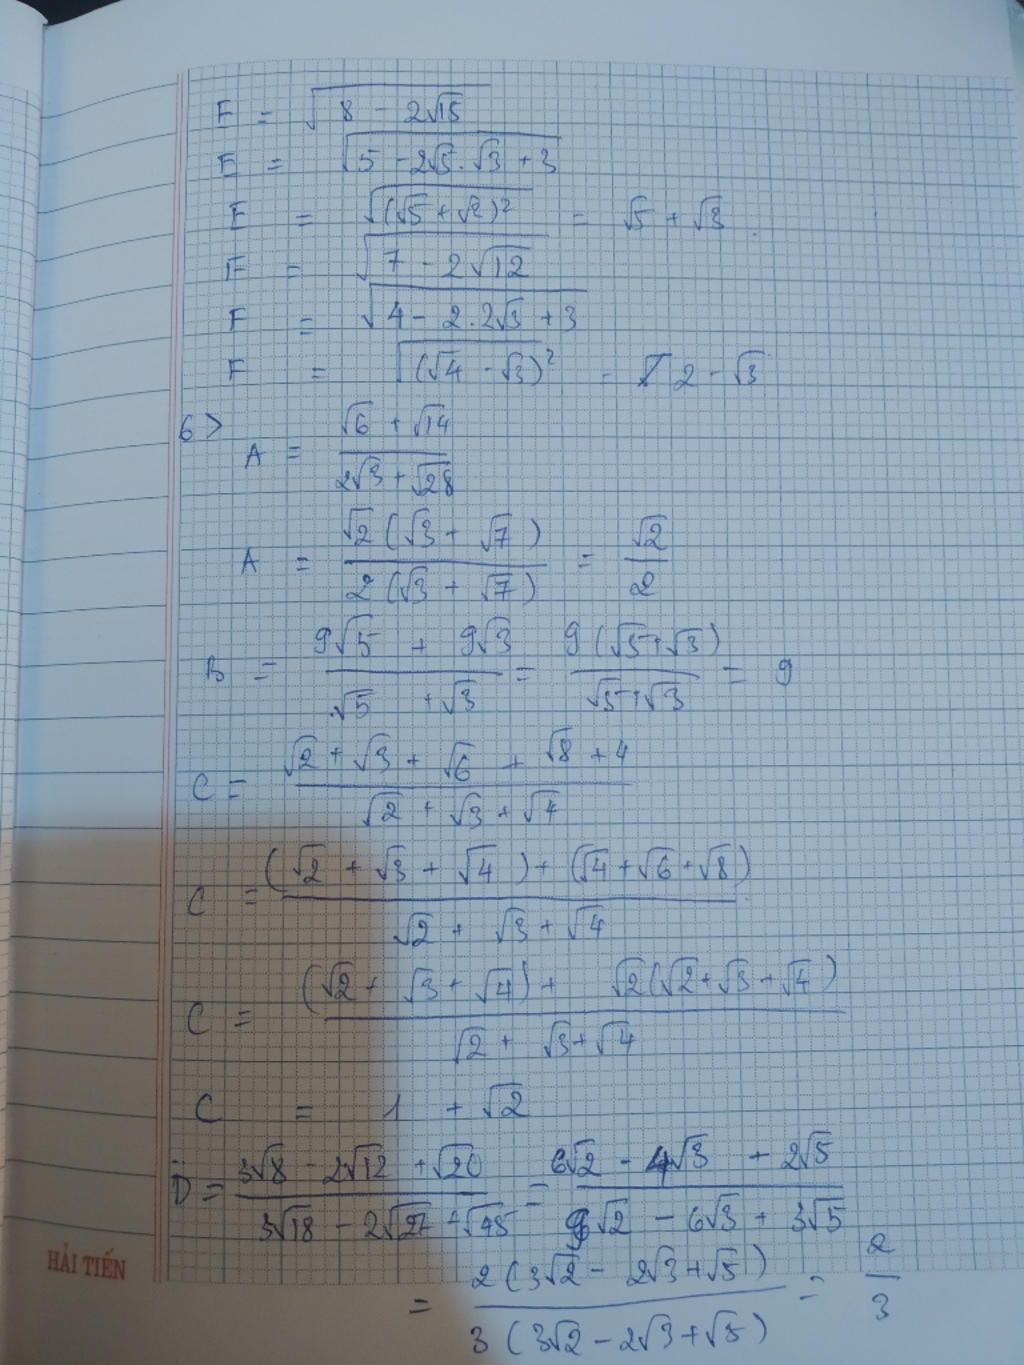 E = √(8 - 2√15)
E = √(5 - 2√5.√3 + 3)
E = √((√5 + √2)²) = √5 + √3.
F = √(7 - 2√12)
F = √(4 - 2.2√3 + 3)
F = √((√4 - √3)²) = 2 - √3
6> A = (√6 + √14)/(2√3 + √28)
A = (√2(√3 + √7))/(2(√3 + √7)) = √2/2
B = (9√5 + 9√3)/(√5 + √3) = (9(√5+√3))/(√5+√3) = 9
C = (√2 + √3 + √6 + √8 + 4)/(√2 + √3 + √4)
C = ((√2 + √3 + √4) + (√4+√6+√8))/(√2 + √3 + √4)
C = ((√2 + √3 + √4) + √2(√2+√3+√4))/(√2 + √3+√4)
C = 1 + √2
D = (3√8 - 2√12 + √20)/(3√18 - 2√27 + √45) = (6√2 - 4√3 + 2√5)/(9√2 - 6√3 + 3√5)
= (2(3√2 - 2√3+√5))/(3(3√2 - 2√3+√5)) = 2/3
HẢI TIẾN